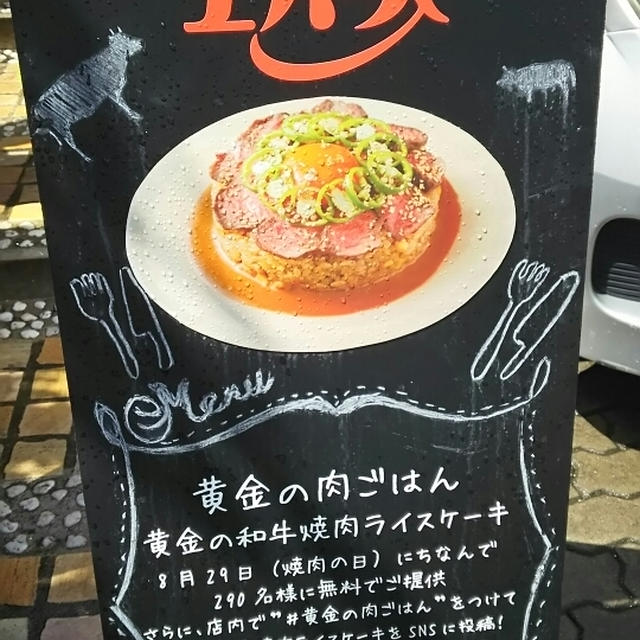 エバラ
Menu
黄金の肉ごはん
黄金の和牛焼肉ライスケーキ
8月29日（焼肉の日）にちなんで
290名様に無料でご提供
さらに、店内で"#黄金の肉ごはん"をつけて
ライスケーキをSNSに投稿!